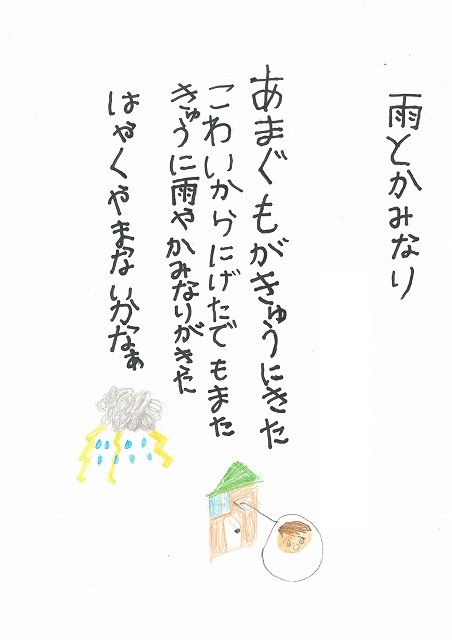 雨とかみなり
あまぐもがきゅうにきた
こわいからにげたでもまた
きゅうに雨やかみなりがきた
はやくやまないかなぁ